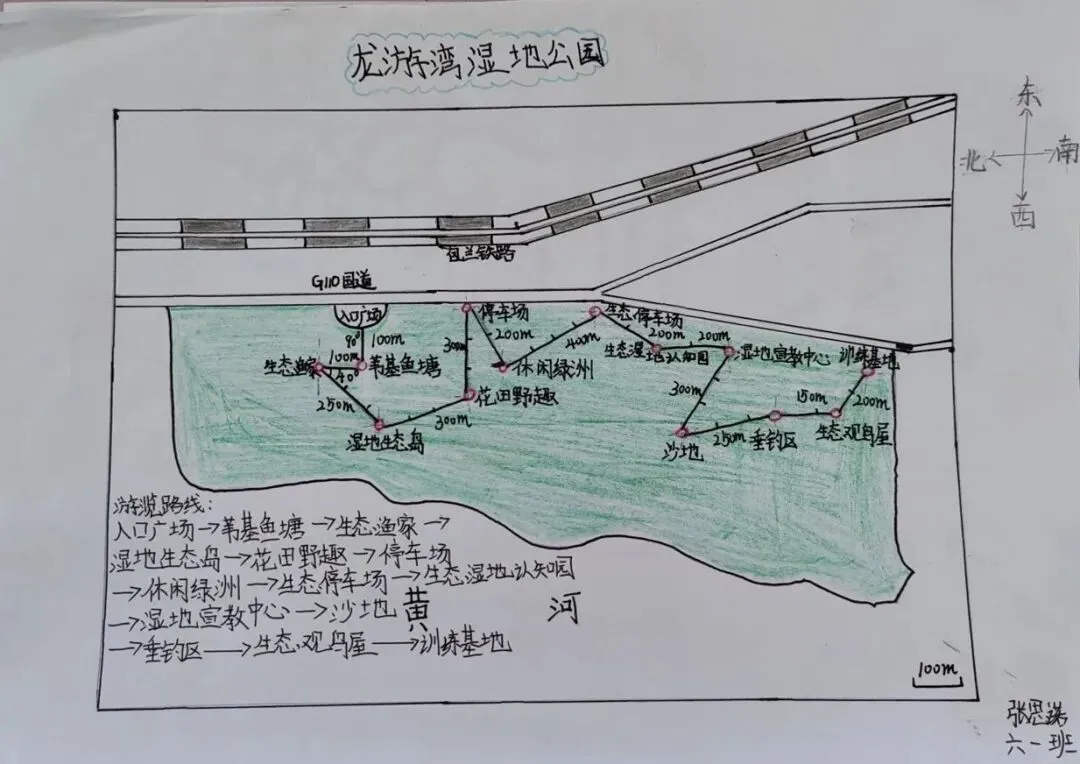 龙游湾湿地公园
东
北
南
西
包兰铁路
G110国道
入口广场
90°
100m
停车场
200m
300m
400m
生态停车场
200m
200m
生态湿地认知园
湿地宣教中心
训练基地
生态渔家
100m
40°
苇基鱼塘
休闲绿洲
250m
花田野趣
300m
湿地生态岛
300m
沙地
250m
垂钓区
150m
200m
生态观鸟屋
游览路线:
入口广场→苇基鱼塘→生态渔家→
湿地生态岛→花田野趣→停车场
→休闲绿洲→生态停车场→生态湿地认知园
→湿地宣教中心→沙地
→垂钓区→生态观鸟屋→训练基地
黄河
100m
六一班